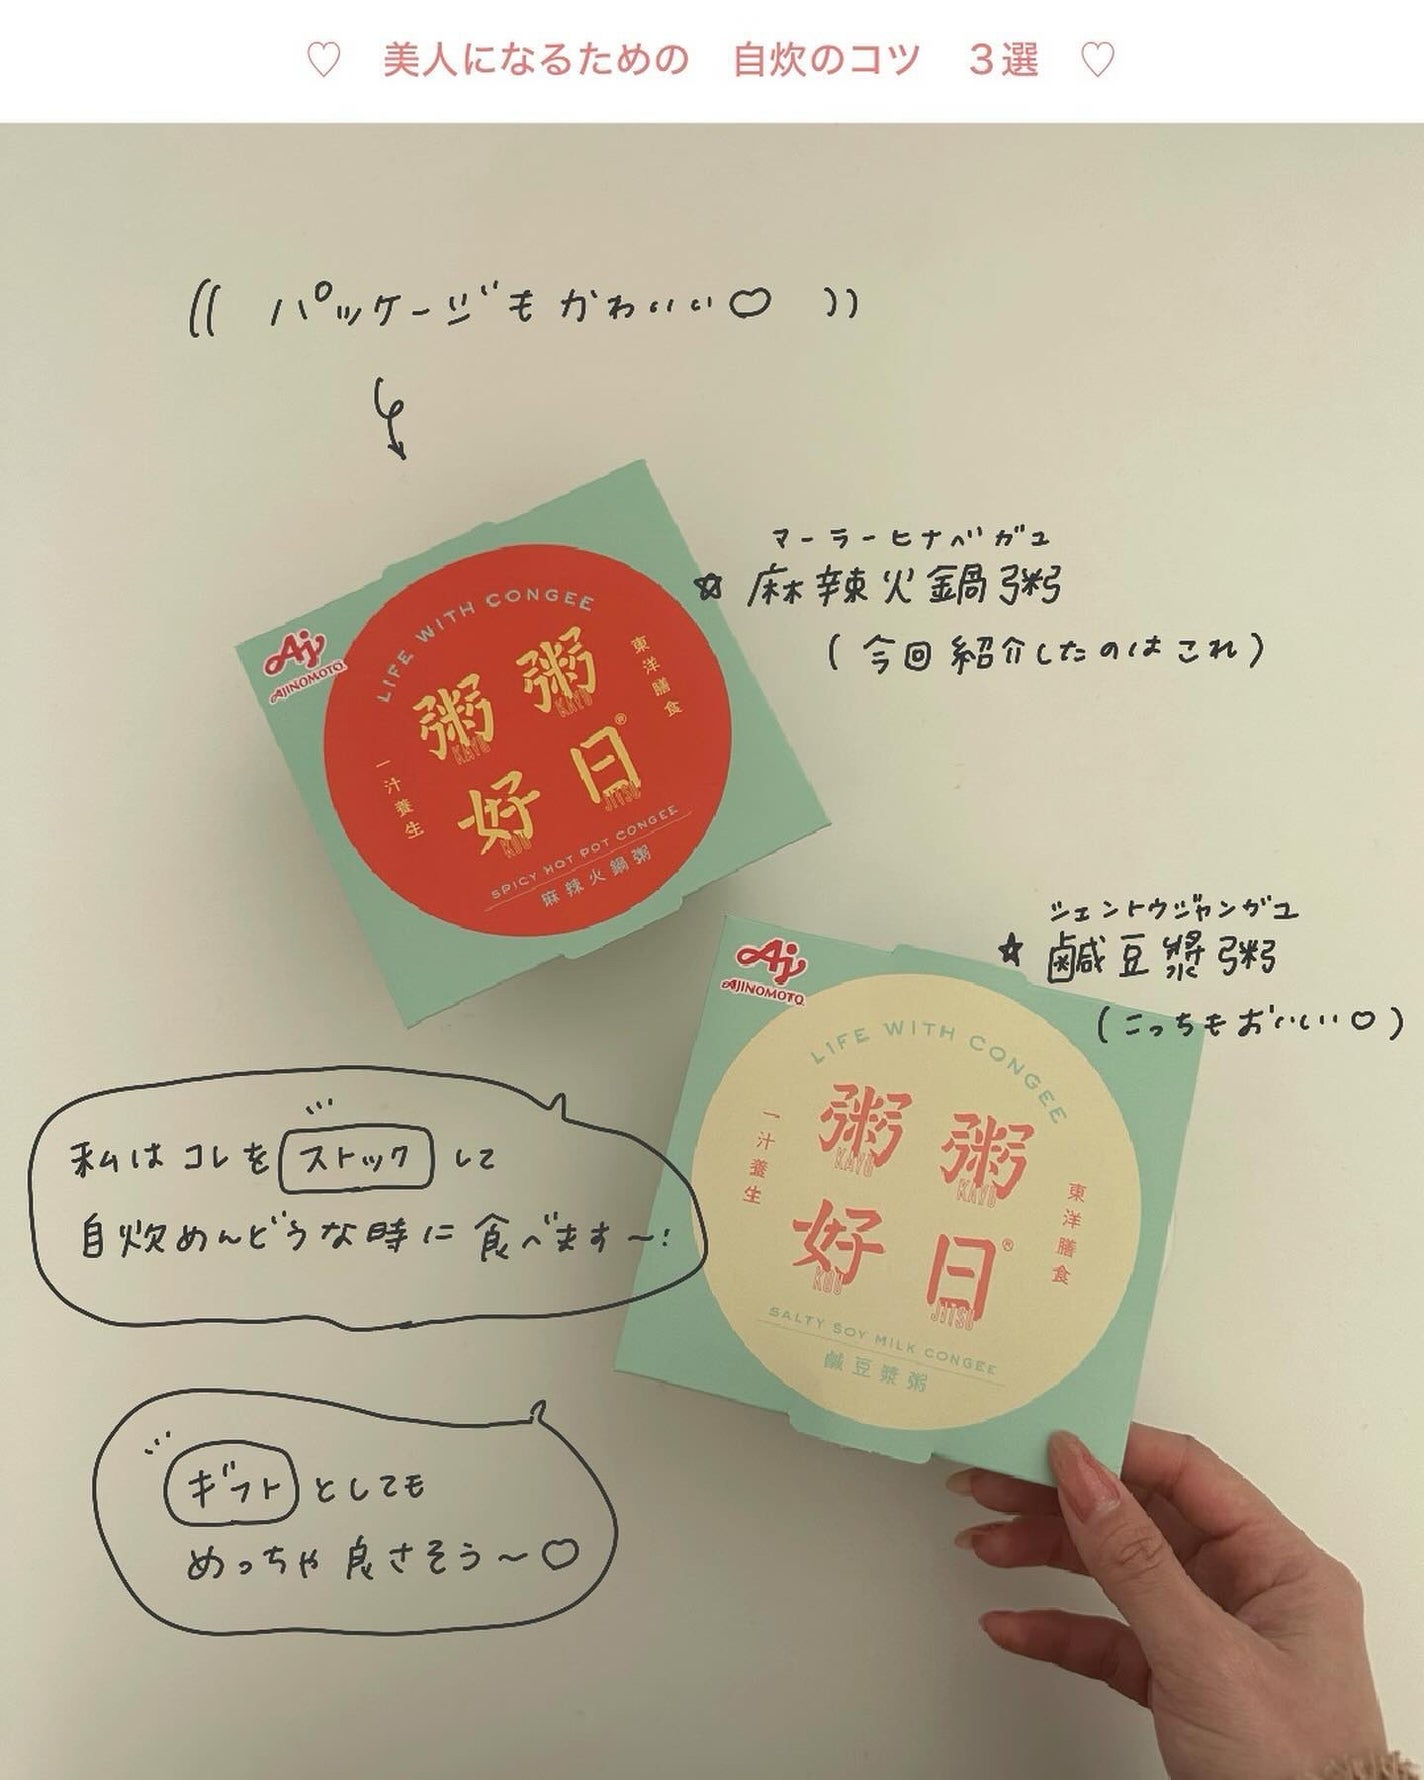 ♡ 美人になるための 自炊のコツ 3選 ♡
(( パッケージもかわいい♡ ))
マーラーヒナベガユ
☆ 麻辣火鍋粥
(今回紹介したのはこれ)
Aj
AJINOMOTO
LIFE WITH CONGEE
粥粥
KAYU KAYU
好日®
KOU JITSU
一汁養生
東洋膳食
SPICY HOT POT CONGEE
麻辣火鍋粥
シェントウジャンガユ
☆ 鹹豆漿粥
(こっちもおいしい♡)
Aj
AJINOMOTO
LIFE WITH CONGEE
粥粥
KAYU KAYU
好日®
KOU JITSU
一汁養生
東洋膳食
SALTY SOY MILK CONGEE
鹹豆漿粥
私はコレをストックして
自炊めんどうな時に食べます〜!
ギフトとしても
めっちゃ良さそう〜♡